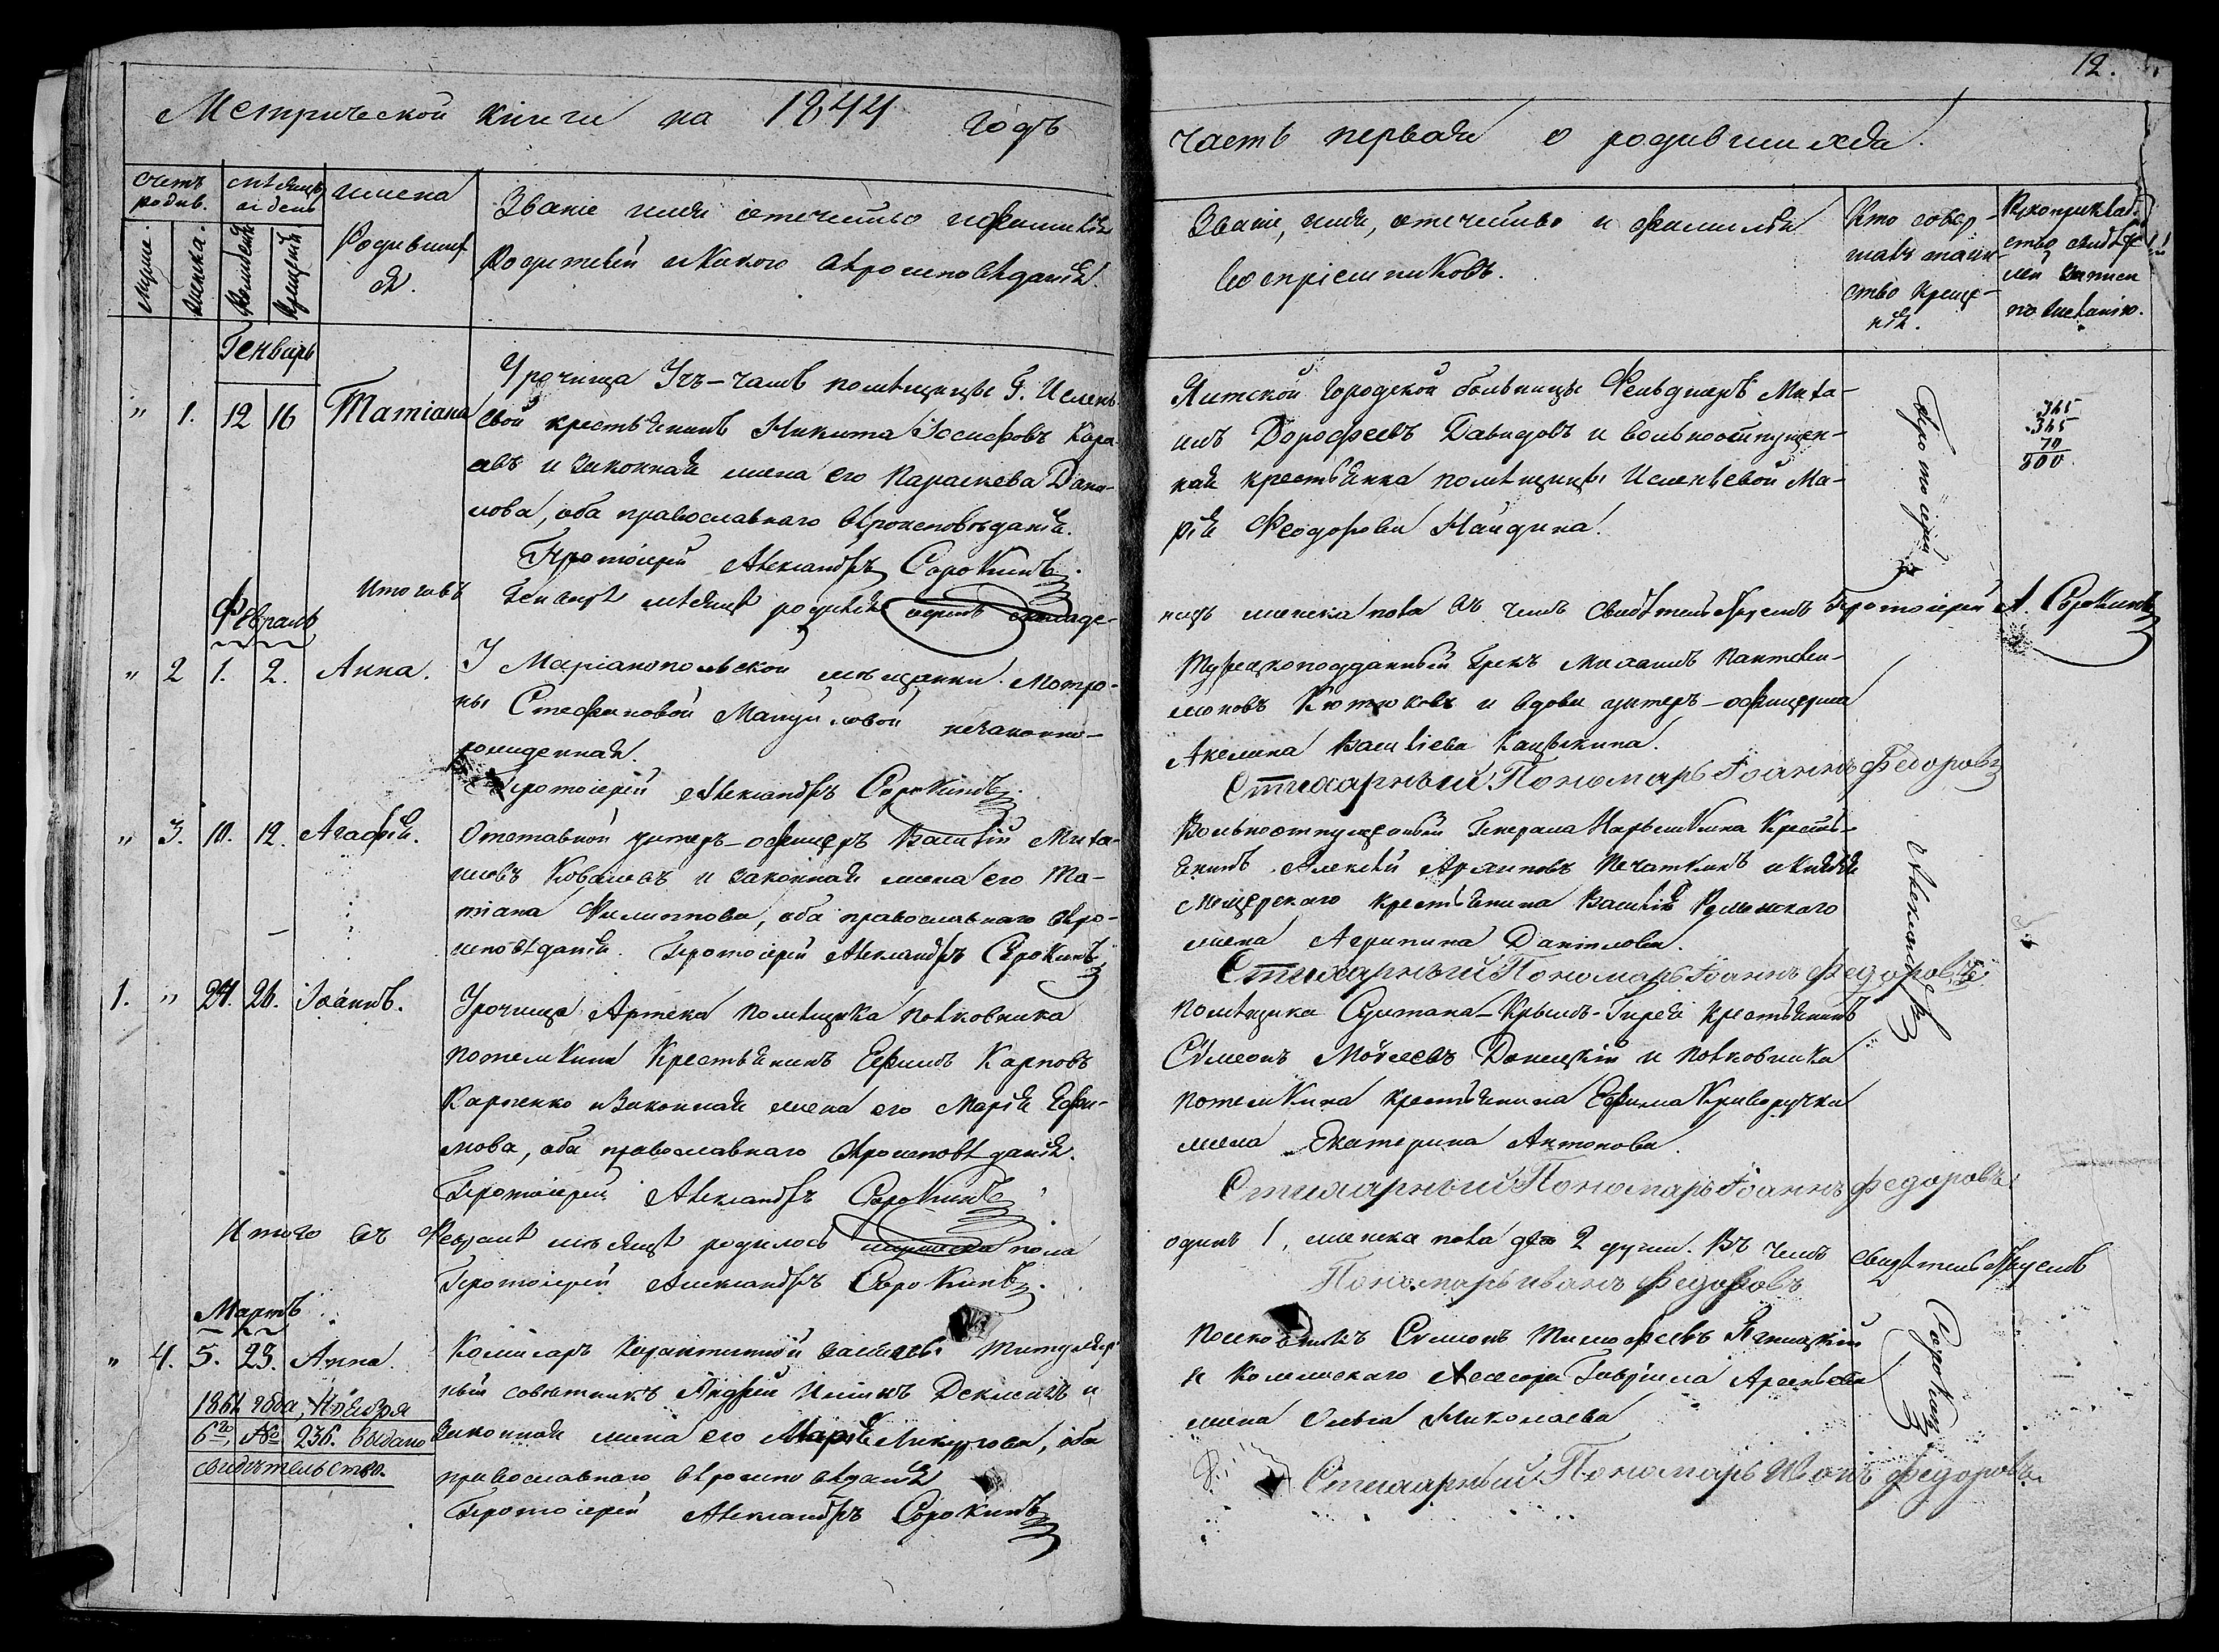 12.
Метрической книги на 1844 годъ
часть первая о родившихся.
счетъ родив.
мѣсяцъ и день
имена
Родившихся.
Званіе имя отечество и фамилія
Родителей и какого вѣроисповѣданія.
Званіе, имя, отечество и фамилія
воспріемниковъ.
Кто совер-
шалъ таин-
ство креще-
нія.
Рукоприклад-
ство свидѣте-
лей записи
по желанію.
Генварь
" 1. 12 16 Татіана
Урочища Учъ-чамъ помѣщицы Г. Ислень-
евой крестьянинъ Никита Іосифовъ Кара-
евъ и законная жена его Параскева Дани-
лова, оба православнаго вѣроисповѣданія.
Протоіерей Александръ Сорокинъ.
Ялтской городской больницы Фельдшеръ Миха-
илъ Дорофеевъ Давидовъ и вольноотпущен-
ная крестьянка помѣщицы Исленьевой Ма-
рія Феодорова Найдина.
Протоіерей
345
345
70
800
Итого въ Генварѣ мѣсяцѣ родился одинъ младе-
нецъ женска пола въ чемъ свидѣтельствуемъ Протоіерей А. Сорокинъ
Февраль
" 2 1. 2. Анна.
У Маріанопольской мѣщанки Матро-
ны Стефановой Мануйловой незаконно-
рожденная.
Протоіерей Александръ Сорокинъ.
Турецкоподданный Грекъ Михаилъ Пантелеи-
моновъ и вдова унтеръ-офицерша
Акелина Васильева
Стихарный Пономарь Іоаннъ Федоровъ
" 3. 10. 12. Агафія.
Отставной унтеръ-офицеръ Василій Миха-
иловъ Ковалевъ и законная жена его Та-
тіана Филиппова, оба православнаго вѣро-
исповѣданія. Протоіерей Александръ Сорокинъ
Вольноотпущенный Генерала Нарышкина Кресть-
янинъ Алексѣй Архиповъ Печаткинъ и Князя
Мещерскаго крестьянина Василія Роменскаго
жена Агрипина Данілова.
Стихарный Пономарь Іоаннъ Федоровъ
Александръ
1. " 24. 26. Іоаннъ.
Урочища Артека помѣщика полковника
Потемкина Крестьянинъ Ефимъ Карповъ
Карпенко и законная жена его Марія Ефи-
мова, оба православнаго вѣроисповѣданія.
Протоіерей Александръ Сорокинъ
помѣщика Султана-Крымъ-Гирея крестьянинъ
Сѵмеонъ Моѵсеевъ Донецкій и полковника
Потемкина крестьянина Ефима Криворучки
жена Екатерина Антонова.
Стихарный Пономарь Іоаннъ Федоровъ
Итого въ Февралѣ мѣсяцѣ родилось мужеска пола
одинъ 1, женска пола двѣ 2 души. Въ чемъ свидѣтельствуемъ
Протоіерей Александръ Сорокинъ.
Пономарь Иванъ Федоровъ
Мартъ
" 4. 5. 23. Анна.
1861 года, Ноября
6го, № 236. выдано
свидѣтельство.
Комисаръ Карантинной заставы Титуляр-
ный совѣтникъ Андрей Ивановъ и
законная жена его Марія Ликургова, оба
православнаго вѣроисповѣданія
Протоіерей Александръ Сорокинъ
Полковникъ Сѵмеонъ Тимофеевъ
и Колежскаго Асесора Гавріила Арсеньева
жена Ольга Николаева
Стихарный Пономарь Иванъ Федоровъ
Сорокинъ.